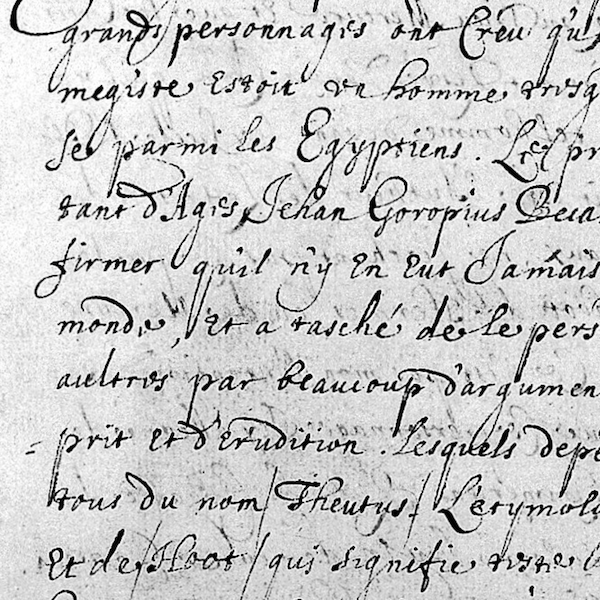 grands personnages ont Creu qu'
megiste Estoit vn homme tres
se parmi les Egyptiens. Les pr
tant d'Ages, Jehan Goropius Beca
firmer qu'il n'y En Eut Jamais
monde, Et a tasché de le pers
aultres par beaucoup d'argumen
prit Et d'Erudition. Lesquels depe
tous du nom/ Theutus/ L'etymolo
Et de/Hoot/ qui signifie teste